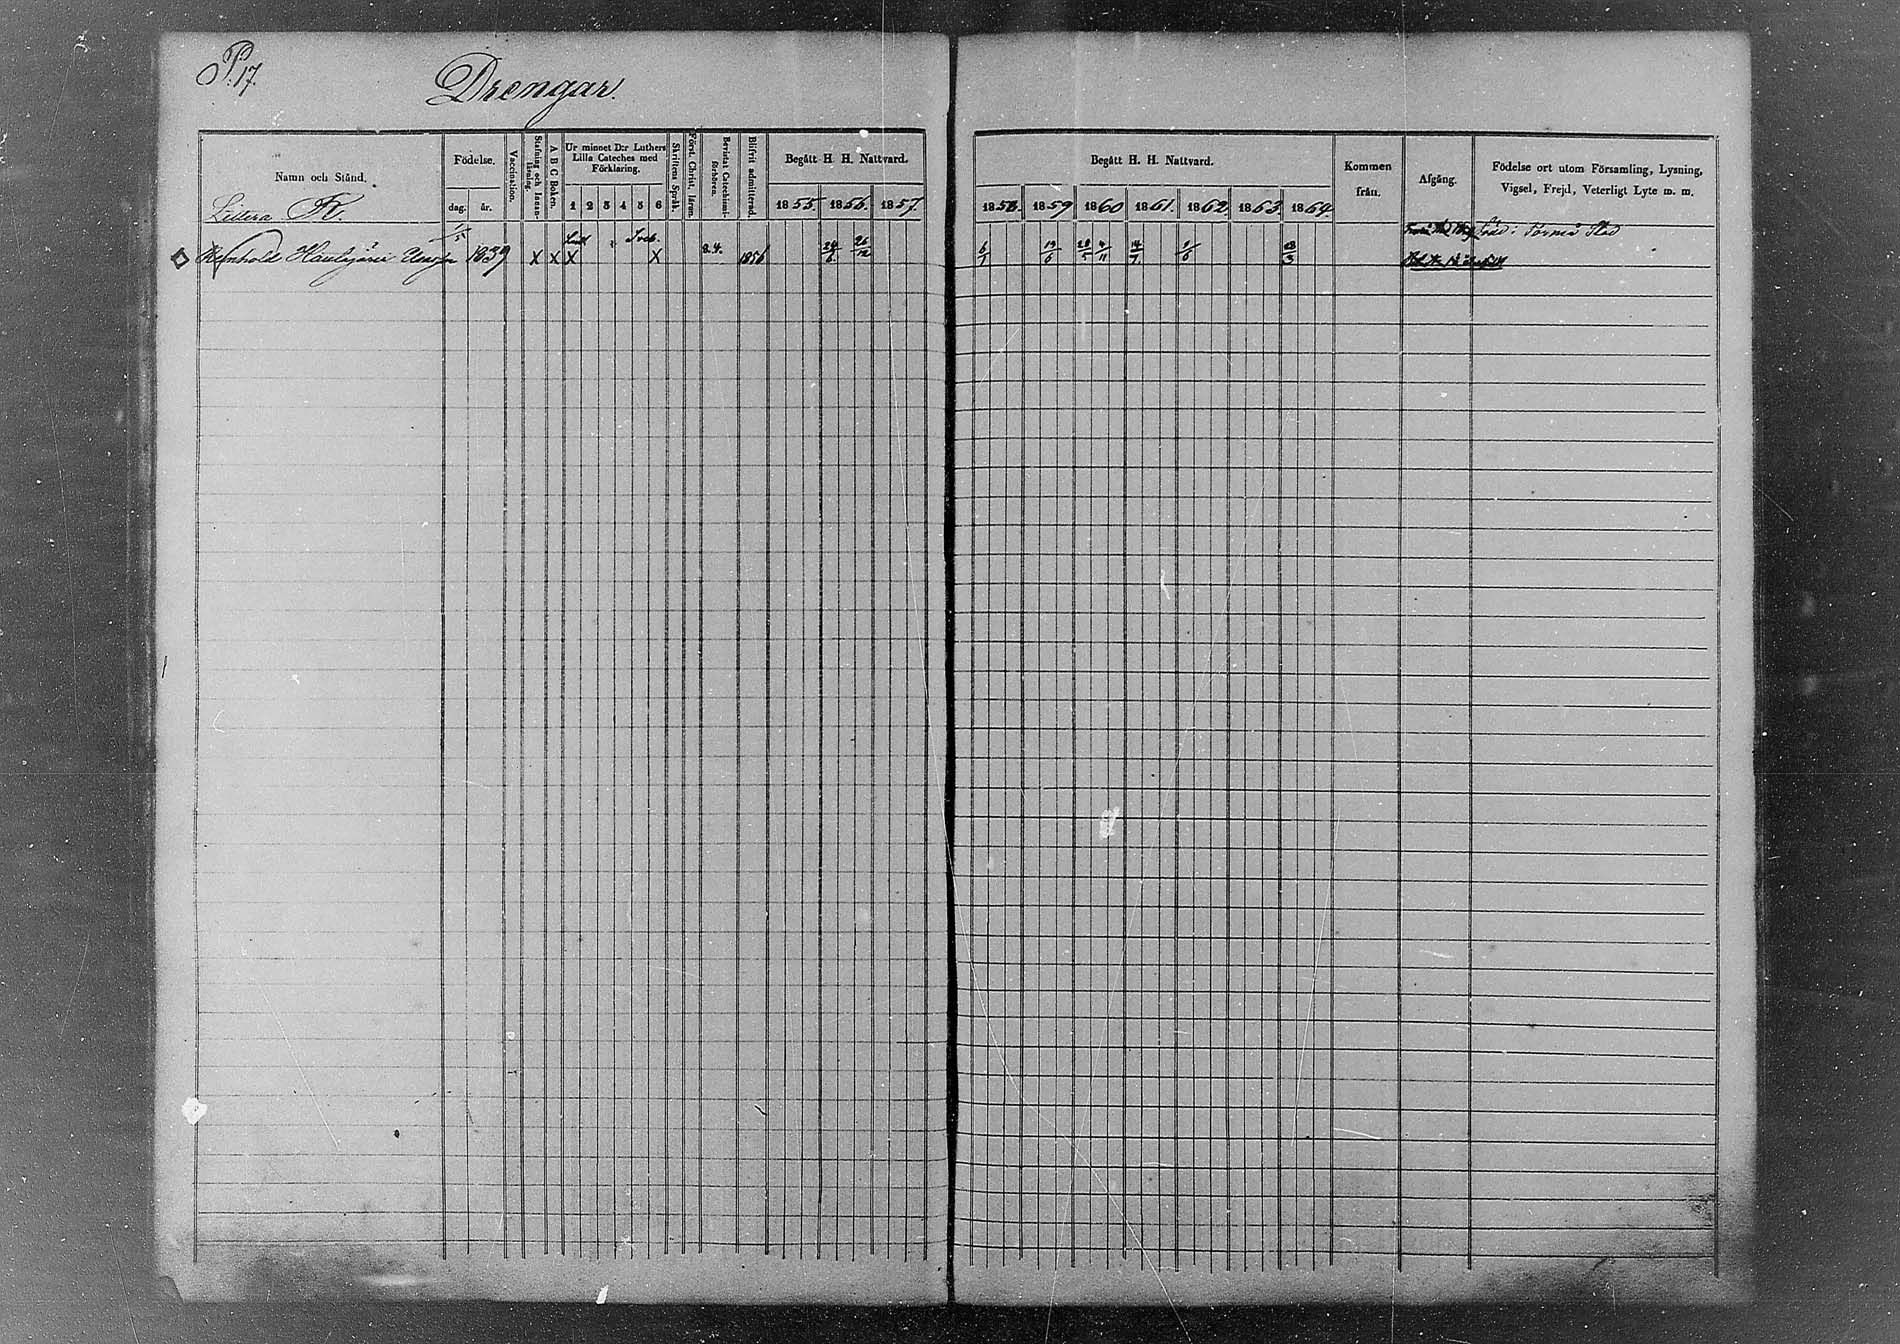 P. 17.
Drengar.
Namn och Stånd.
Littera R.
Födelse.
dag. år.
Vaccination.
Stafning och innan-läsning.
A B C Boken.
Ur minnet D:r Luthers Lilla Cateches med Förklaring.
1 2 3 4 5 6
Skriftens Språk.
Först. Christ. läran.
Bevistat Catechismi-förhören.
Blifvit admitterad.
Begått H. H. Nattvard.
1855. 1856. 1857.
Reinhold 1839 X X X X 1856 24/6 26/12
Begått H. H. Nattvard.
1858. 1859 1860 1861. 1862. 1863. 1864.
Kommen från.
Afgång.
Födelse ort utom Församling, Lysning, Vigsel, Frejd, Veterligt Lyte m. m.
Född i Borgå Stad
6/1 19/6 28/5 4/11 14/7. 1/6 28/3